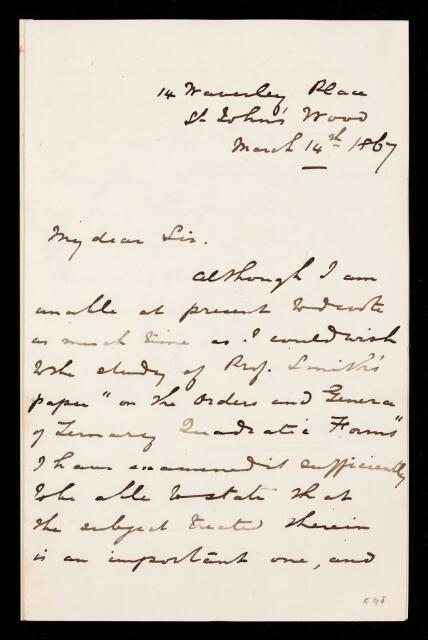 14 Waverley Place
St John's Wood
March 14th 1867
My dear Sir.
Although I am
unable at present to devote
as much time as I could wish
to the study of Prof. Smith's
paper "on the Orders and Genera
of Ternary Quadratic Forms"
I have examined it sufficiently
to be able to state that
the subject treated therein
is an important one, and